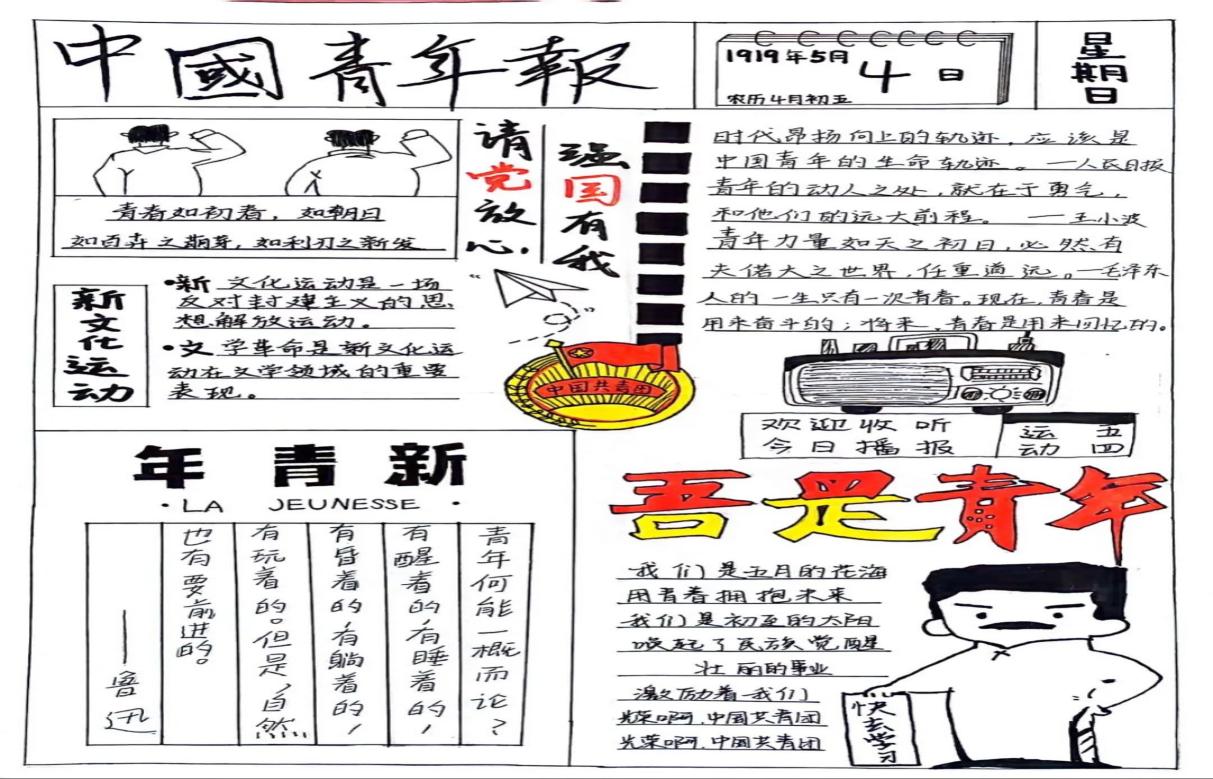 中國青年報
1919年5月
4日
农历4月初五
星期日
青春如初春，如朝日
如百卉之萌芽，如利刃之新发
请党放心，
强国有我
时代昂扬向上的轨迹，应该是
中国青年的生命轨迹。——人民日报
青年的动人之处，就在于勇气，
和他们的远大前程。——王小波
青年力量如天之初日，必然有
夫偌大之世界，任重道远。——毛泽东
人的一生只有一次青春。现在，青春是
用来奋斗的；将来，青春是用来回忆的。
新文化运动
·新文化运动是一场
反对封建主义的思
想解放运动。
·文学革命是新文化运
动在文学领域的重要
表现。
中国共青团
欢迎收听
今日播报
五四
运动
新青年
·LA JEUNESSE·
青年何能一概而论？
有醒着的，有睡着的，
有昏着的，有躺着的，
有玩着的。但是，自然
也有要前进的。
——鲁迅
吾是青年
我们是五月的花海
用青春拥抱未来
我们是初至的太阳
唤起了民族觉醒
壮丽的事业
激励着我们
光荣啊，中国共青团
光荣啊，中国共青团
快去学习